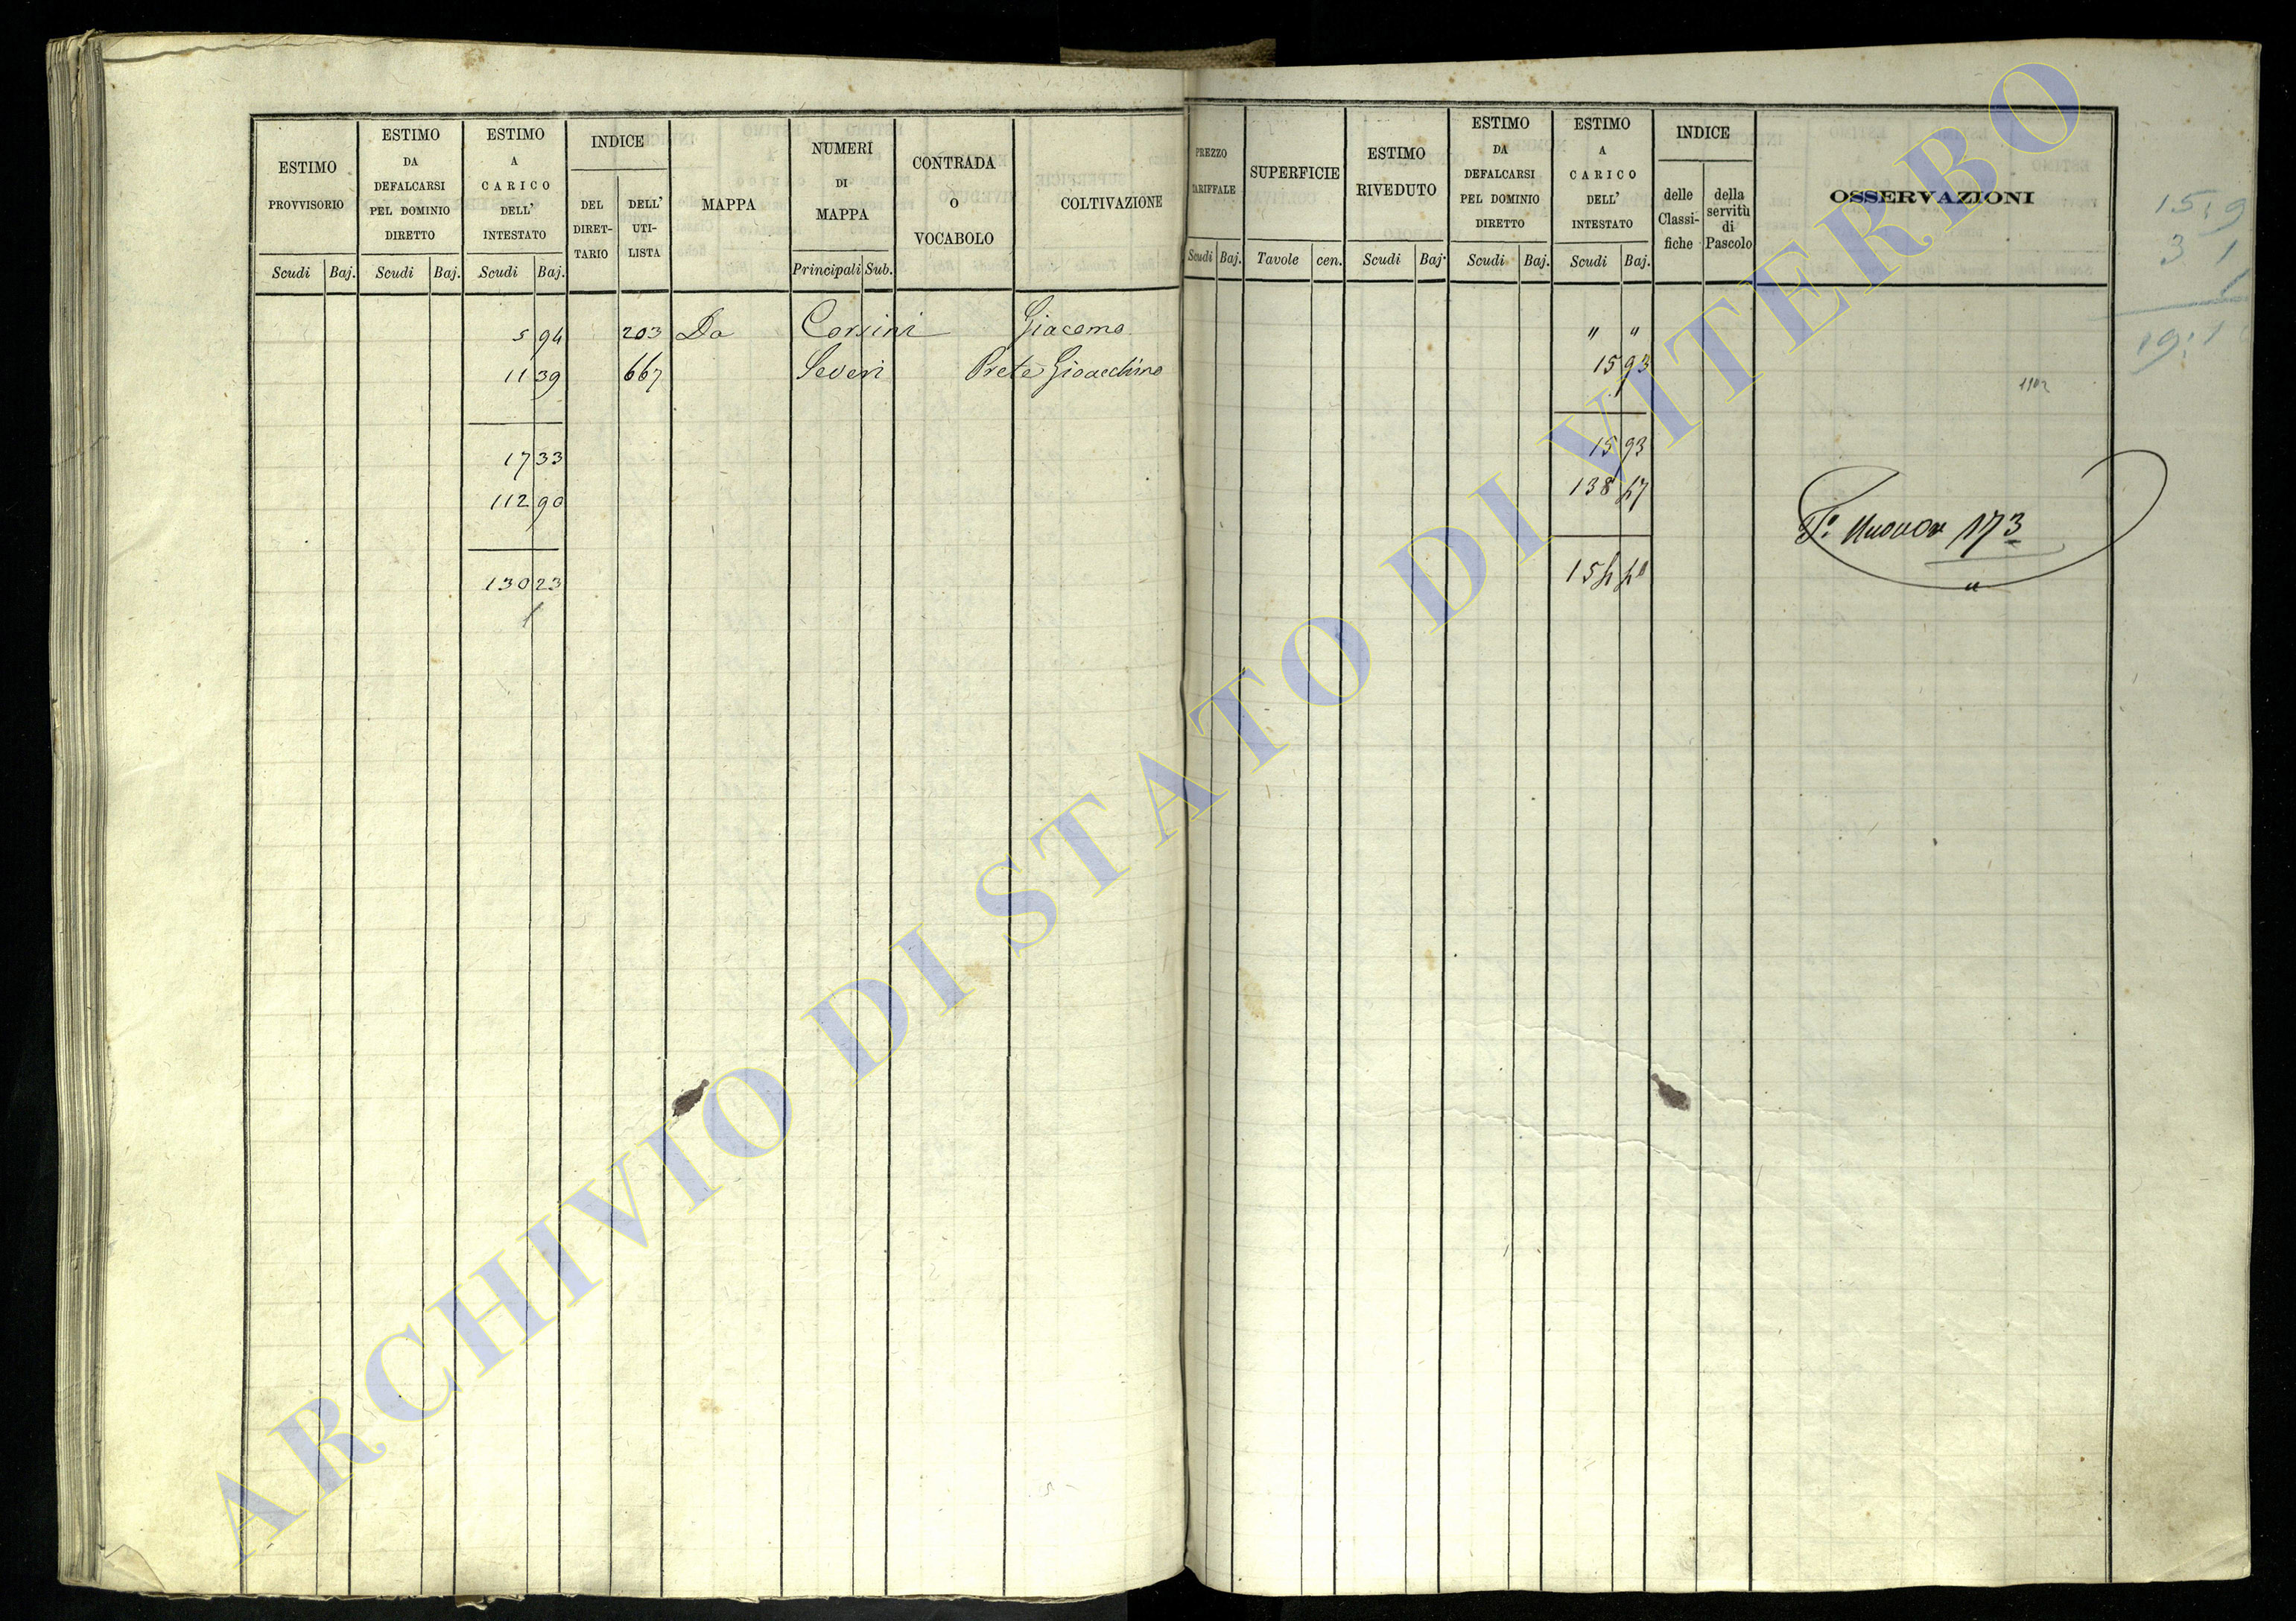 ESTIMO PROVVISORIO
Scudi Baj.
ESTIMO DA DEFALCARSI PEL DOMINIO DIRETTO
Scudi Baj.
ESTIMO A CARICO DELL' INTESTATO
Scudi Baj.
INDICE
DEL DIRET-TARIO
DELL' UTI-LISTA
MAPPA
NUMERI DI MAPPA
Principali Sub.
CONTRADA O VOCABOLO
COLTIVAZIONE
PREZZO TARIFFALE
Scudi Baj.
SUPERFICIE
Tavole cen.
ESTIMO RIVEDUTO
Scudi Baj.
ESTIMO DA DEFALCARSI PEL DOMINIO DIRETTO
Scudi Baj.
ESTIMO A CARICO DELL' INTESTATO
Scudi Baj.
INDICE
delle Classi-fiche
della servitù di Pascolo
OSSERVAZIONI
5 94 203 Da Corsini Giacomo " "
11 39 667 Severi Prete Gioacchino 15 93
17 33 15 93
112 90 138 47
130 23 154 40
173
15,9
3 1
1
19,1
ARCHIVIO DI STATO DI VITERBO